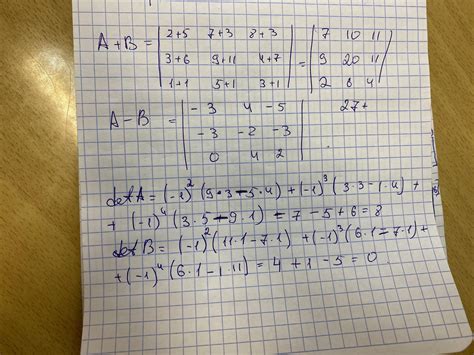 A+B = | 2+5 7+3 8+3 | = | 7 10 11 |
| 3+6 9+11 4+7 | | 9 20 11 |
| 1+1 5+1 3+1 | | 2 6 4 |
A-B = | -3 4 -5 | 27+
| -3 -2 -3 |
| 0 4 2 |
detA = (-1)² (9·3-5·4) + (-1)³ (3·3-1·4) +
+ (-1)⁴ (3·5-9·1) = 7 - 5 + 6 = 8
detB = (-1)² (11·1-7·1) + (-1)³ (6·1-7·1) +
+ (-1)⁴ (6·1-1·11) = 4 + 1 - 5 = 0